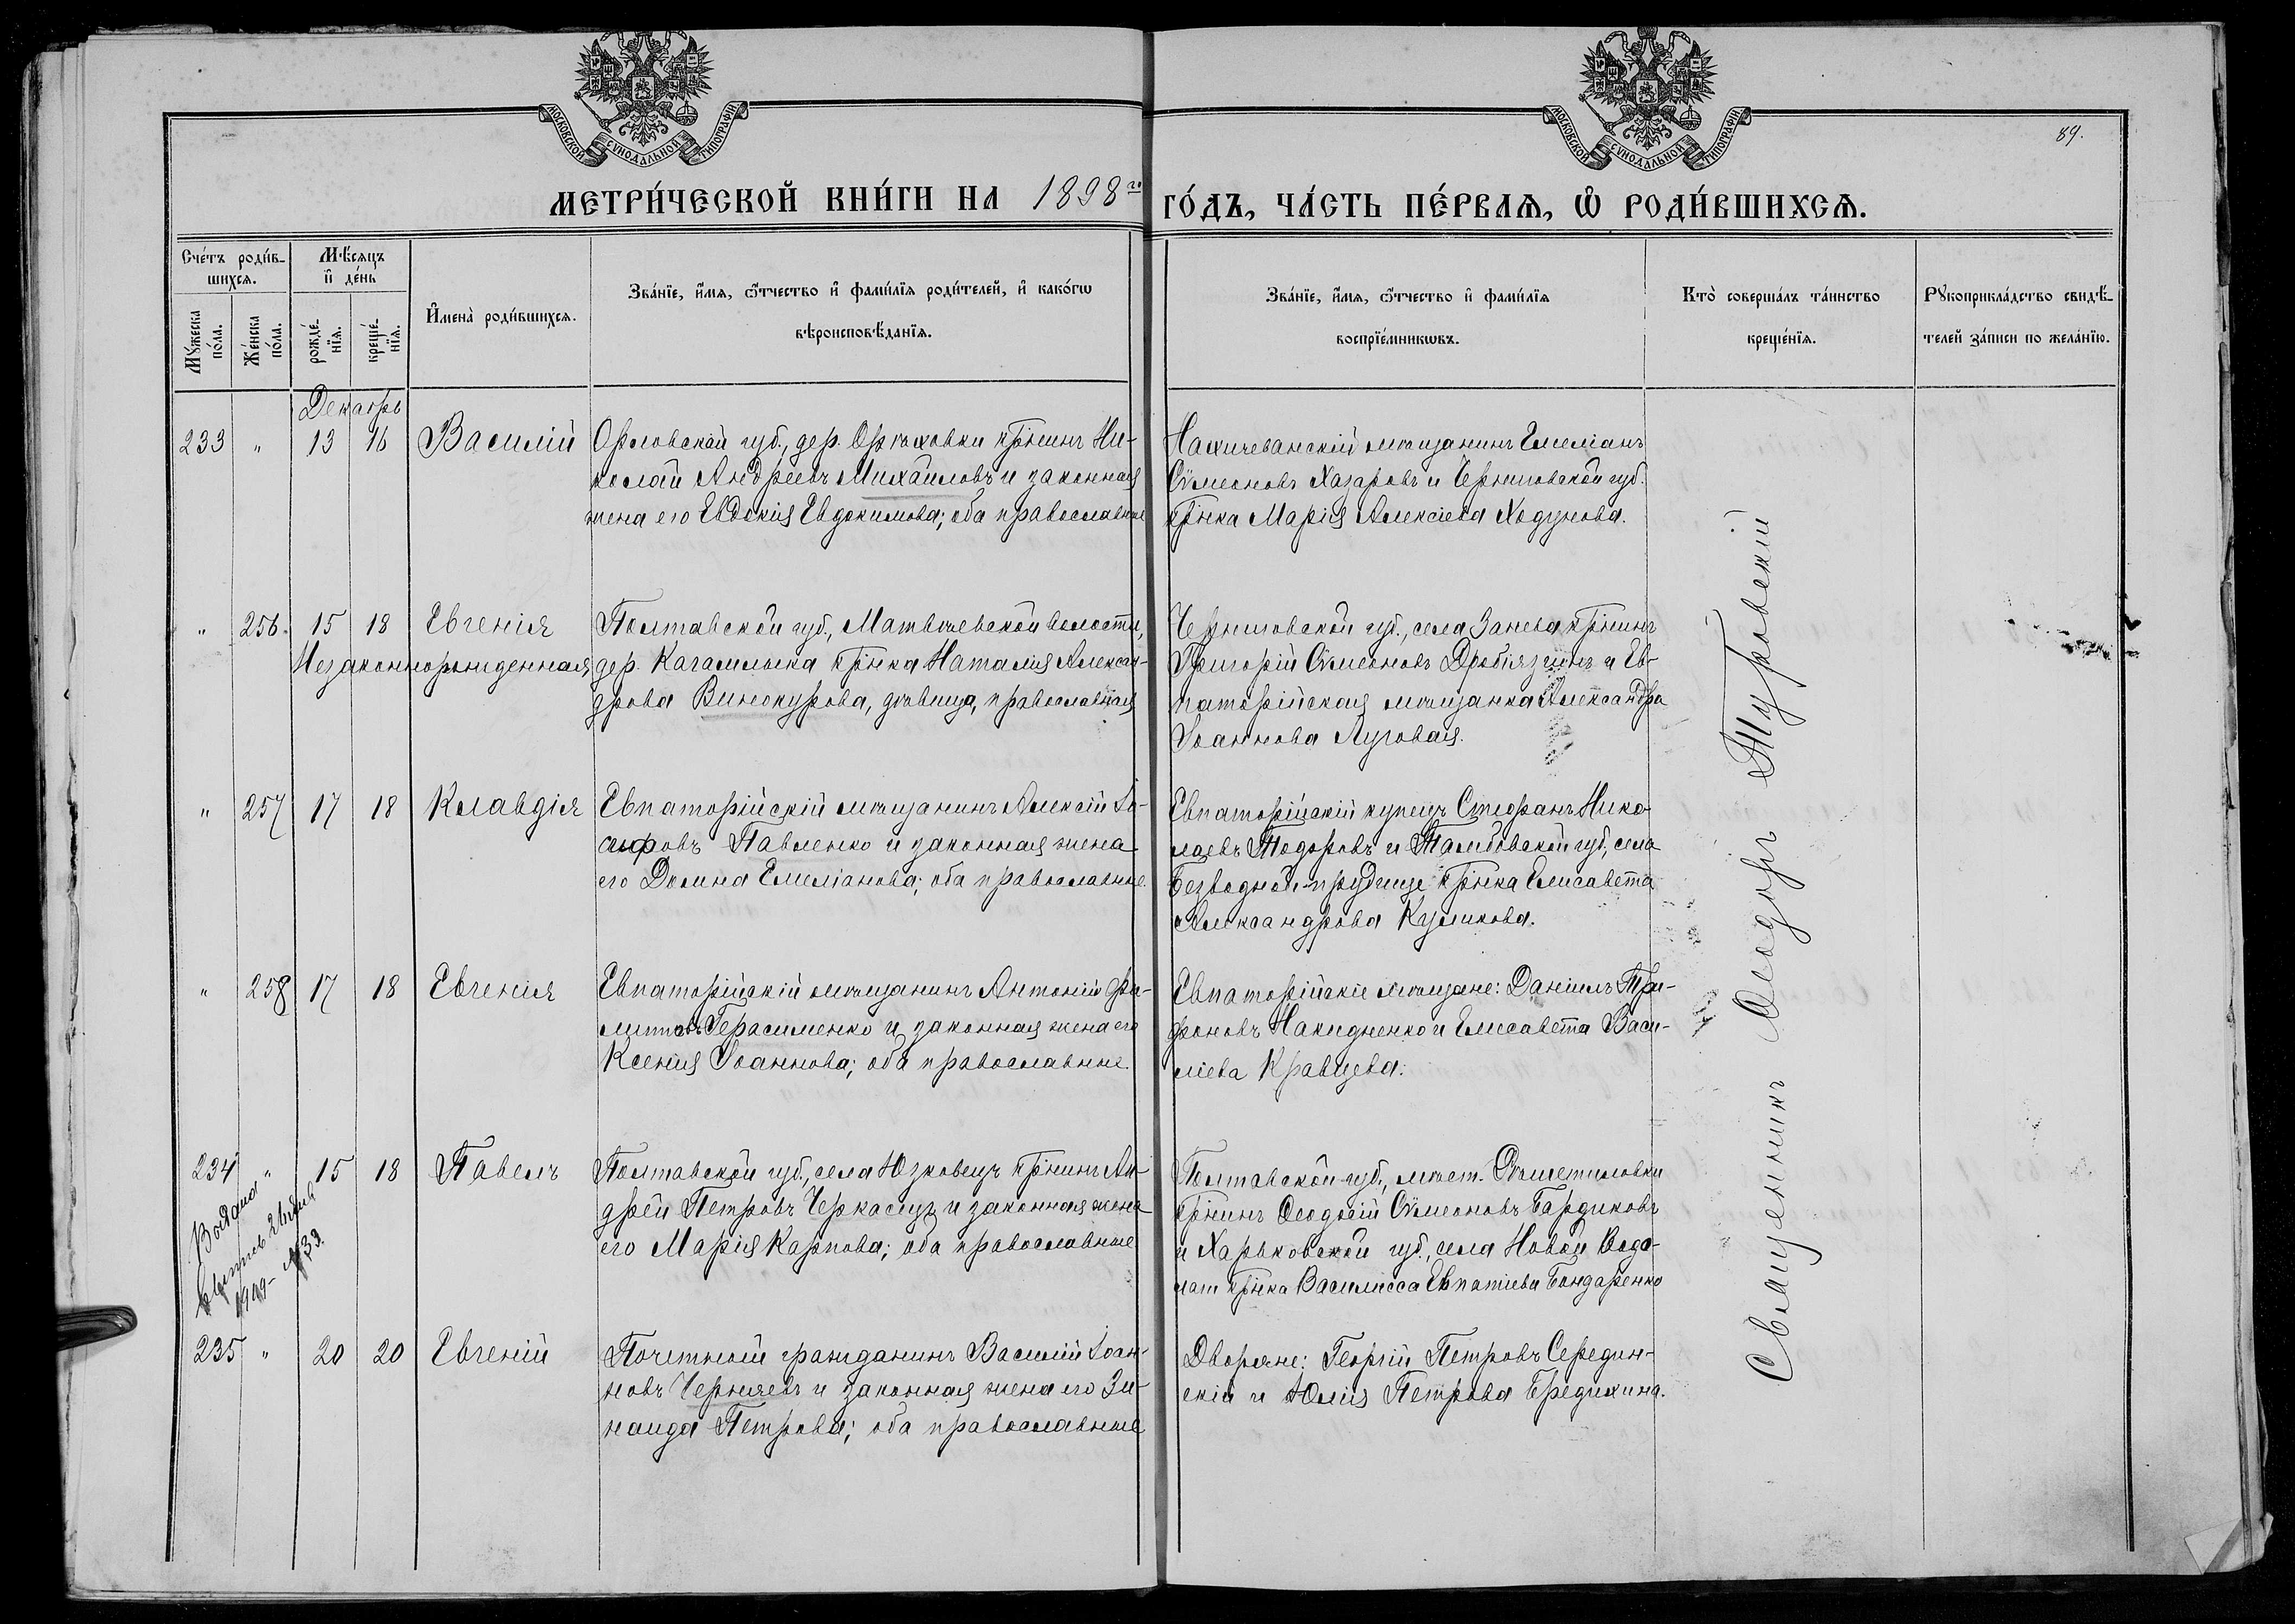 МОСКОВСКОЙ СѴНОДАЛЬНОЙ ТИПОГРАФІИ
МОСКОВСКОЙ СѴНОДАЛЬНОЙ ТИПОГРАФІИ
89.
МЕТРИ́ЧЕСКОЙ КНИ́ГИ НА 1898го ГО́ДЪ, ЧА́СТЬ ПЕ́РВАѦ, Ѡ РОДИ́ВШИХСѦ.
Сче́тъ роди́в-
шихсѧ.
Мꙋжеска по́ла.
Же́нска по́ла.
Мѣ́сяцъ
и҆ де́нь
рожде́-
нїѧ.
креще́-
нїѧ.
И҆мена̀ роди́вшихсѧ.
Зва́нїе, и҆́мѧ, ѻ҆́тчество и҆ фами́лїѧ роди́телей, и҆ како́гѡ
вѣроисповѣ́данїѧ.
Зва́нїе, и҆́мѧ, ѻ҆́тчество и҆ фами́лїѧ
воспрїе́мникѡвъ.
Кто̀ соверша́лъ та́инство
креще́нїѧ.
Рꙋкоприкла́дство свидѣ́-
телей за́писи по жела́нїю.
Декабрь
233 " 13 16 Василій
Орловской губ., дер. крнинъ Ни-
колай Андреевъ Михайловъ и законная
жена его Евдокія Евдокимова; оба православные
Нахичеванскій мѣщанинъ Емеліанъ
Сѵмеоновъ Хазаровъ и Черниговской губ.
крнка Марія Алексіева Ходунова.
" 256. 15 18 Евгенія
Незаконнорожденная
Полтавской губ., Матвѣевской волости,
дер. Кагамлыка крнка Наталія Алексан-
дрова Винокурова, дѣвица, православная
Черниговской губ., села Занева крнинъ
Григорій Сѵмеоновъ Дробязгинъ и Ев-
паторійская мѣщанка Александра
Іоаннова Луговая.
" 257 17 18 Клавдія
Евпаторійскій мѣщанинъ Алексій Іо-
сифовъ Павленко и законная жена
его Домна Емеліанова; оба православные.
Евпаторійскій купецъ Стефанъ Нико-
лаевъ Тодоровъ и Тамбовской губ., села
Безводной-прудище крнка Елисавета
Александрова Куликова.
" 258 17 18 Евгенія
Евпаторійскій мѣщанинъ Антоній Фи-
липповъ Герасименко и законная жена его
Ксенія Іоаннова; оба православные.
Евпаторійскіе мѣщане: Даніилъ Три-
фоновъ Накидненко и Елисавета Васи-
ліева Кравцева.
234 " 15 18 Павелъ
Полтавской губ., села Юзковецъ крнинъ Ан-
дрей Петровъ Черкасецъ и законная жена
его Марія Карпова; оба православные
Полтавской губ., мѣст. Рѣшетиловки
крнинъ Ѳеодосій Сѵмеоновъ Бардиковъ
и Харьковской губ., села Новой Водо-
лаги крнка Василисса Евпатіева Бондаренко
1919 № 39.
235 " 20 20 Евгеній
Почетный гражданинъ Василій Іоан-
новъ Черняевъ и законная жена его Зи-
наида Петрова; оба православные
Дворяне: Георгій Петровъ Середин-
скій и Юлія Петрова Бредихина.
Священникъ Ѳеодоръ Туровскій